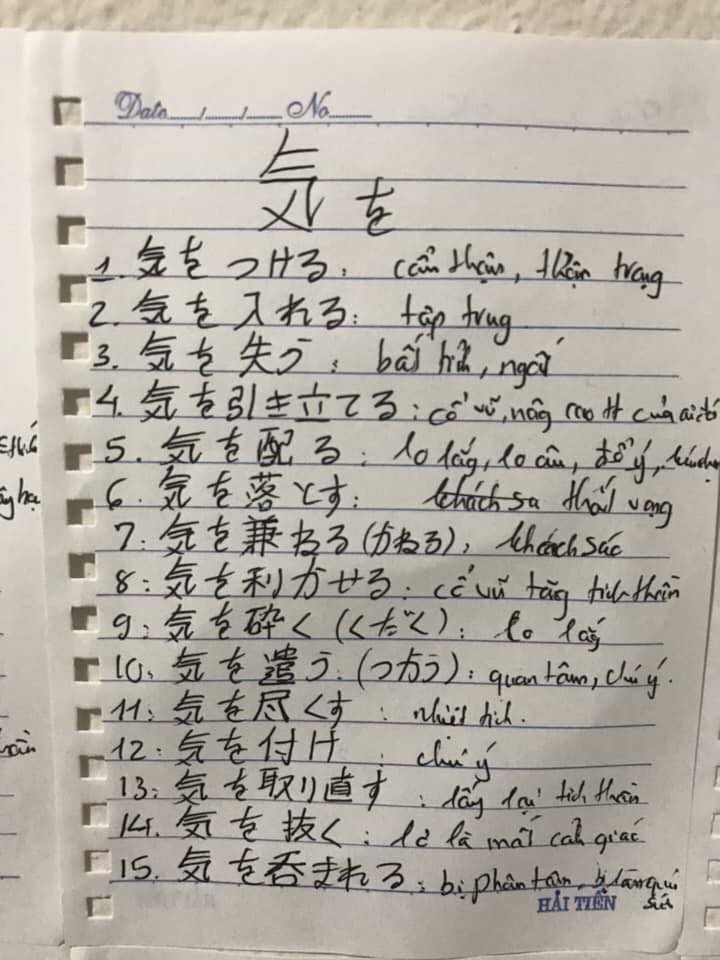 Date___/___/___ No____
気を
1. 気をつける: cẩn thận, thận trọng
2. 気を入れる: tập trug
3. 気を失う: bất tỉnh, ngất
4. 気を引き立てる: cổ vũ, nâg cao tt của ai đó
5. 気を配る: lo lắg, lo âu, để ý,
6. 気を落とす: thất vọng
7: 気を兼ねる (かねる), khách sáo
8: 気を利かせる: cổ vũ tăg tinh thần
9: 気を砕く (くだく): lo lắg
10: 気を遣う. (つかう): quan tâm, chú ý.
11: 気を尽くす: nhiệt tình.
12: 気を付け: chú ý
13: 気を取り直す: lấy lại tinh thần
14. 気を抜く: lơ là mất cảh giác
15. 気を呑まれる: bị phân tâm, bị
HẢI TIẾN